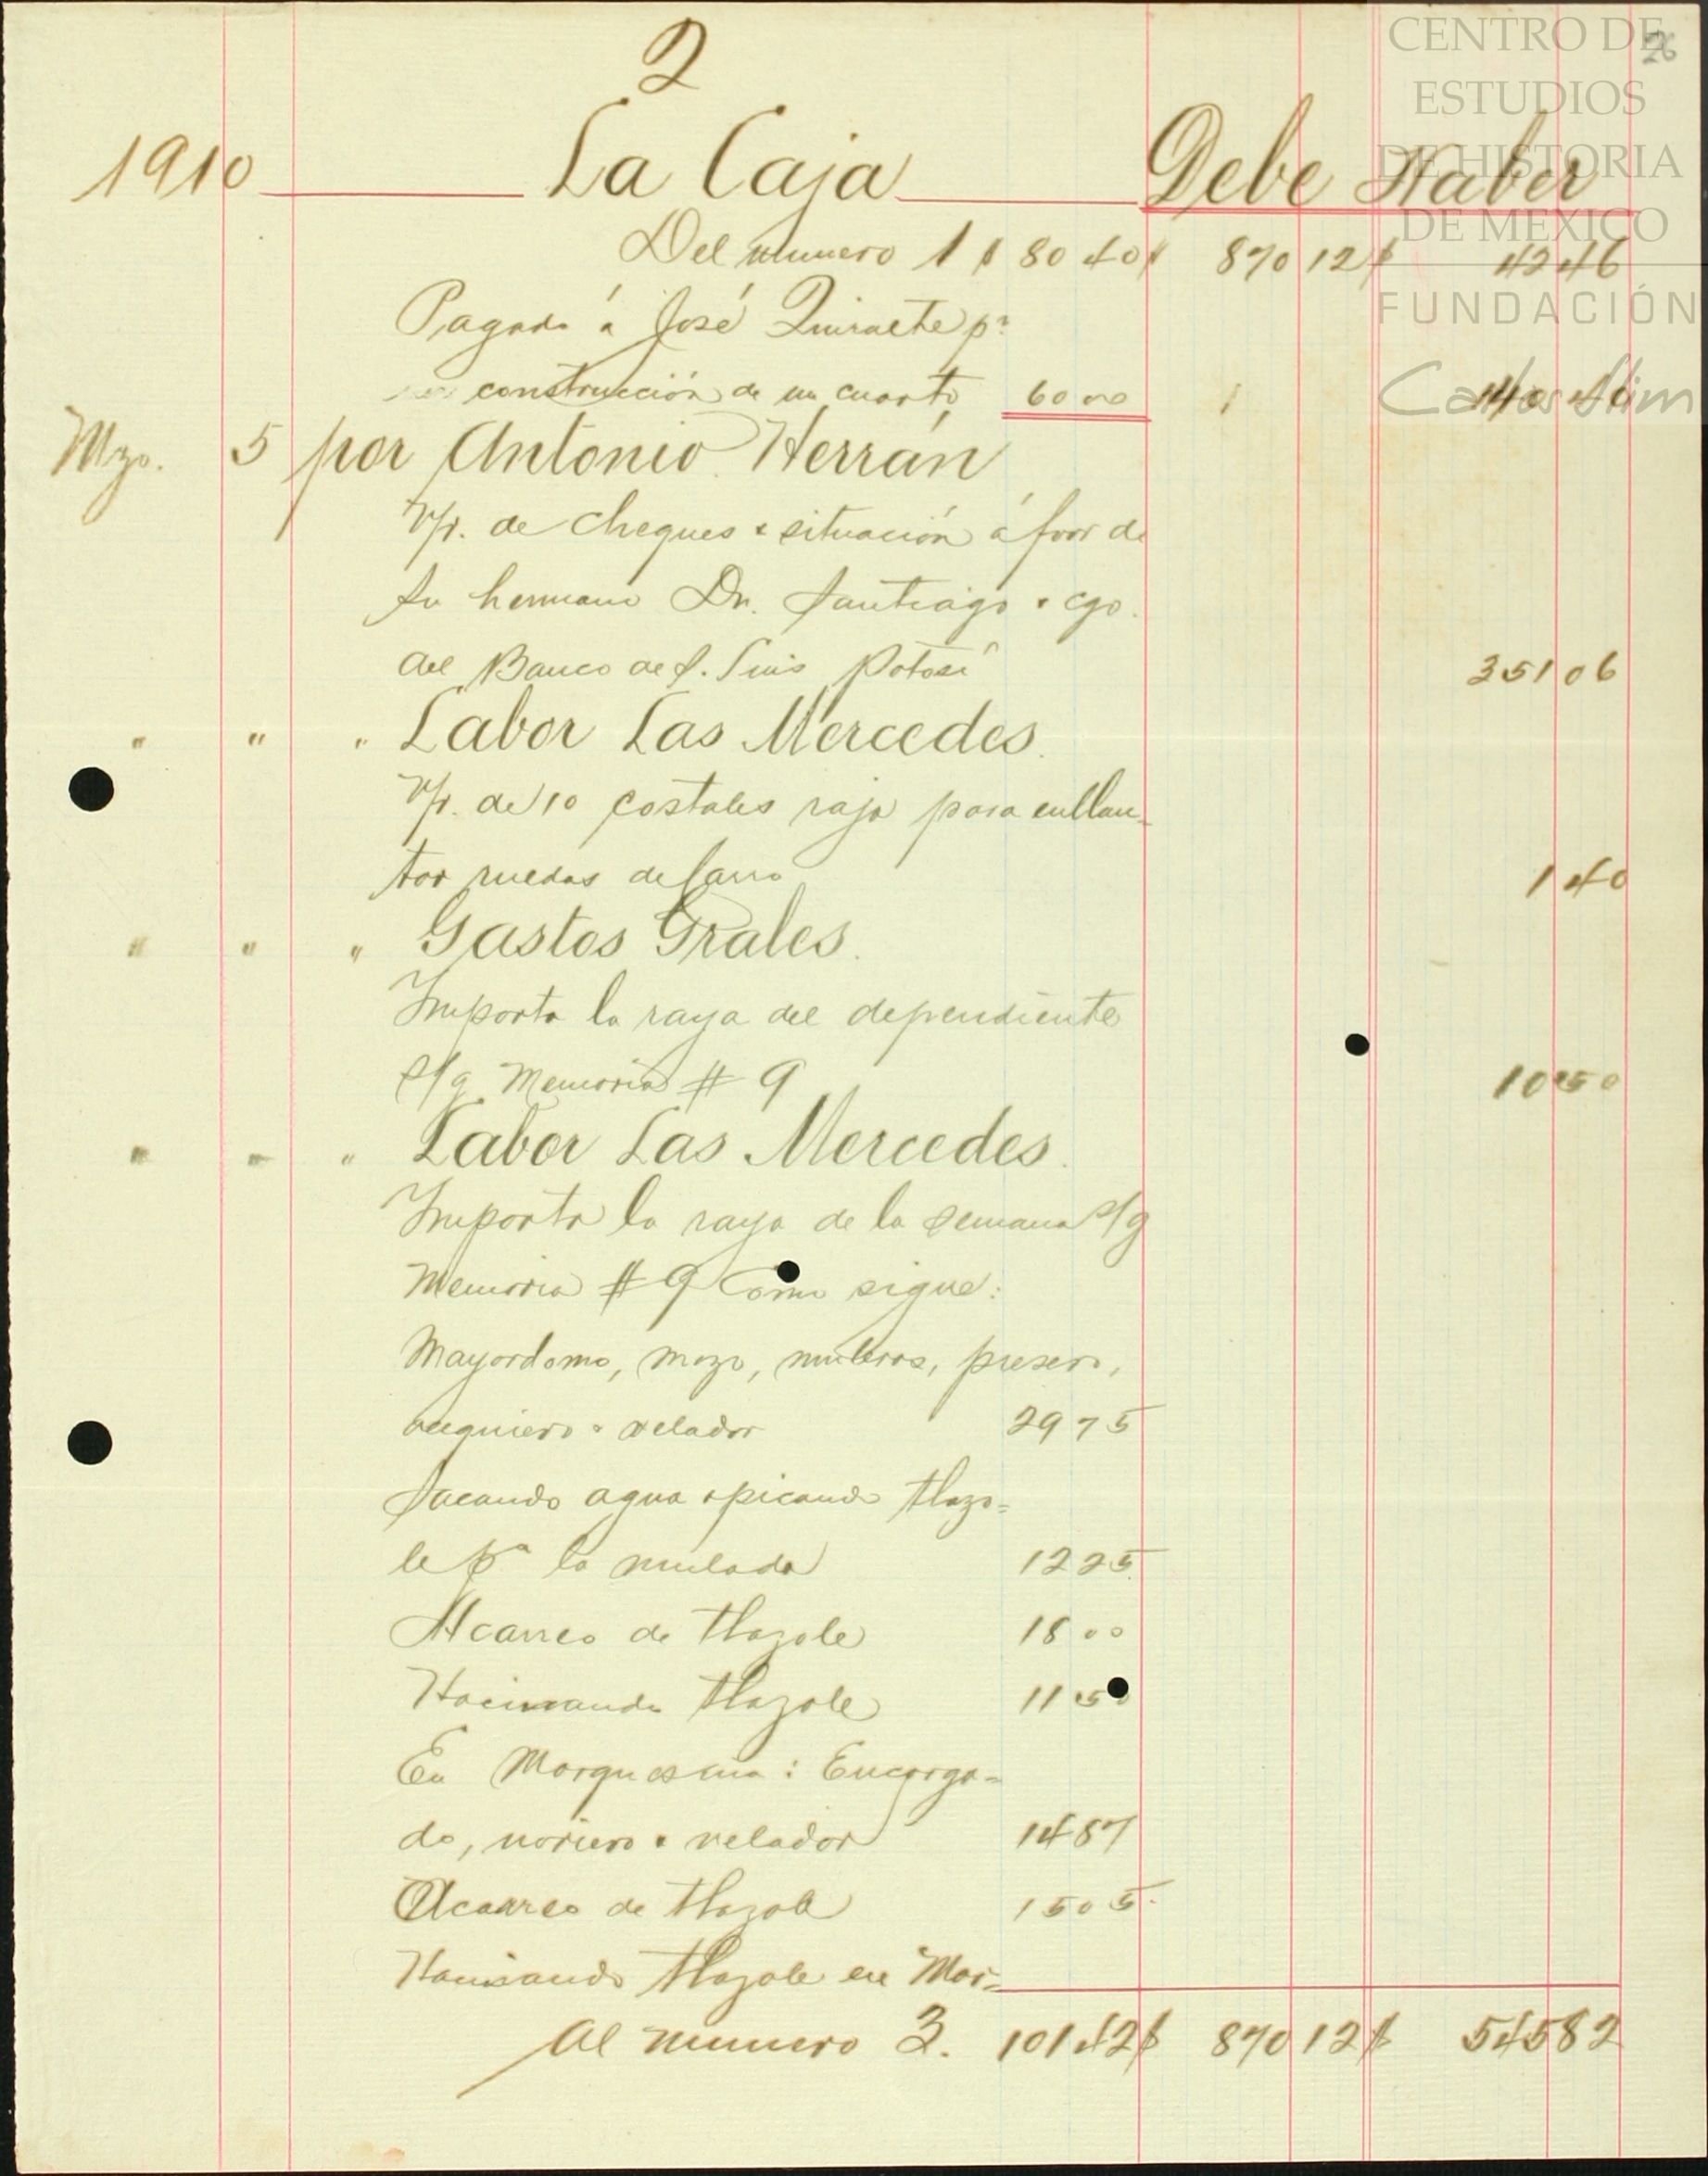 2
26
CENTRO DE
ESTUDIOS
DE HISTORIA
DE MEXICO
FUNDACIÓN
Carlos Slim
1910 La Caja Debe Haber
Del numero 1 $ 80 40 $ 870 12 $ 42 46
Pagado á José p.
construcción de un cuarto 60 00 140 40
Mzo. 5 por Antonio Herrán
V/r. de cheques & situación á fvor de
su hermano Dn. Santiago & cgo.
del Banco de S. Luis Potosí 351 06
" " " Labor Las Mercedes.
V/r. de 10 costales raja para enllan-
tar ruedas de carro 1 40
" " " Gastos Grales.
Importa la raya del dependiente
s/g Memoria # 9 10 50
" " " Labor Las Mercedes.
Importa la raya de la semana s/g
Memoria # 9 como sigue:
Mayordomo, mozo, muleros, presero,
& velador 29 75
Sacando agua & picando tlazo=
le pa la mulada 12 25
Acarreo de tlazole 18 00
Hacinando tlazole 11 50
En Marquesena: Encarga=
do, noriero & velador 14 87
Acarreo de tlazole 15 05
Hacinando tlazole en Mar=
Al numero 3. 101 42 $ 870 12 $ 545 82